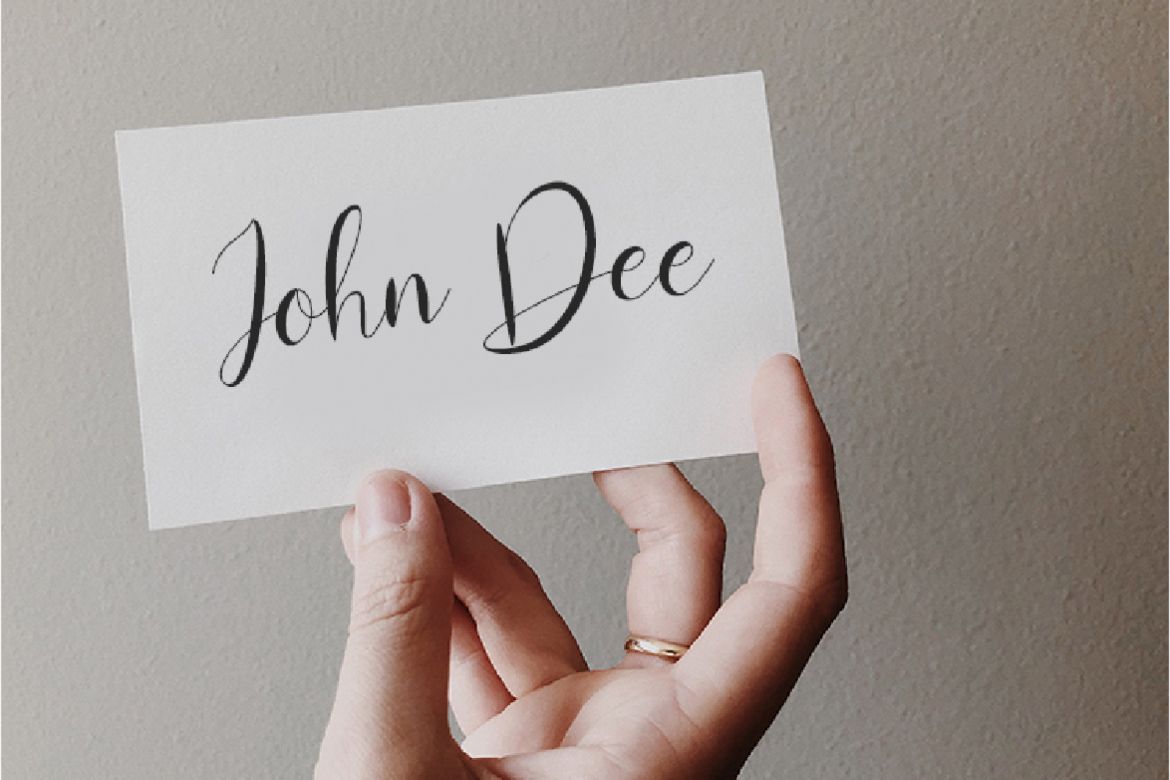 John Dee